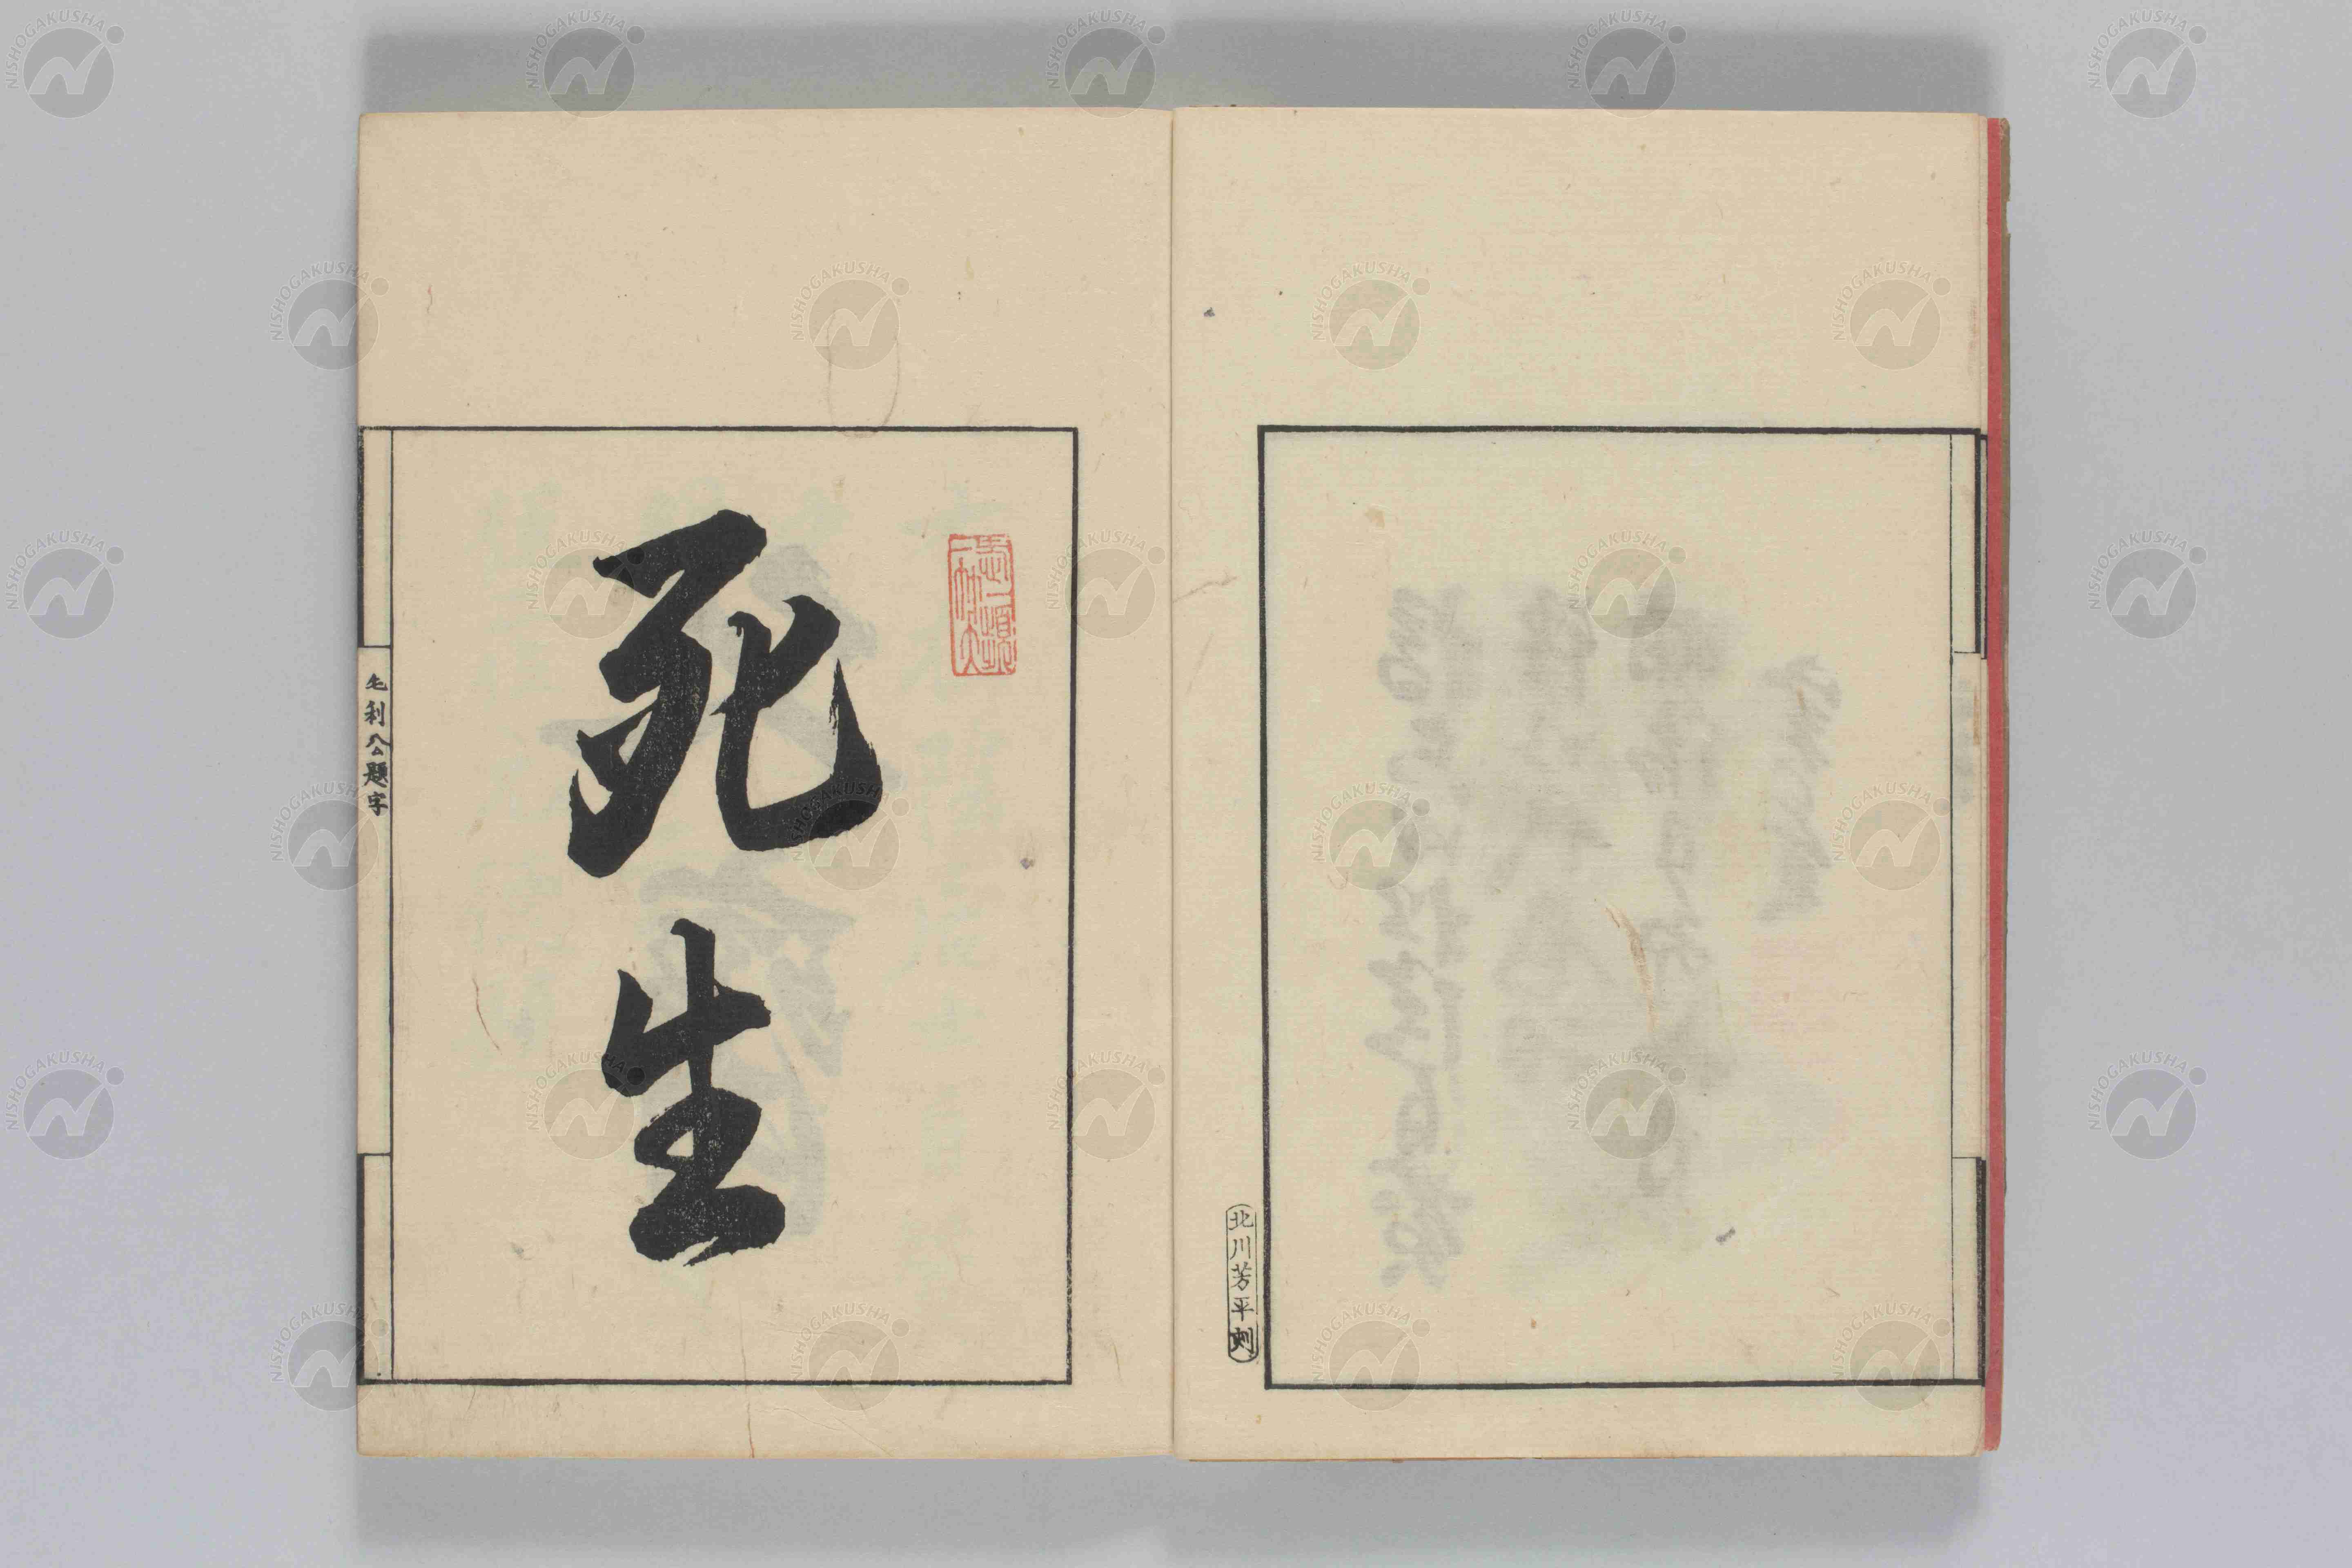 北川芳平刻
死生
毛利公題字
NISHOGAKUSHA